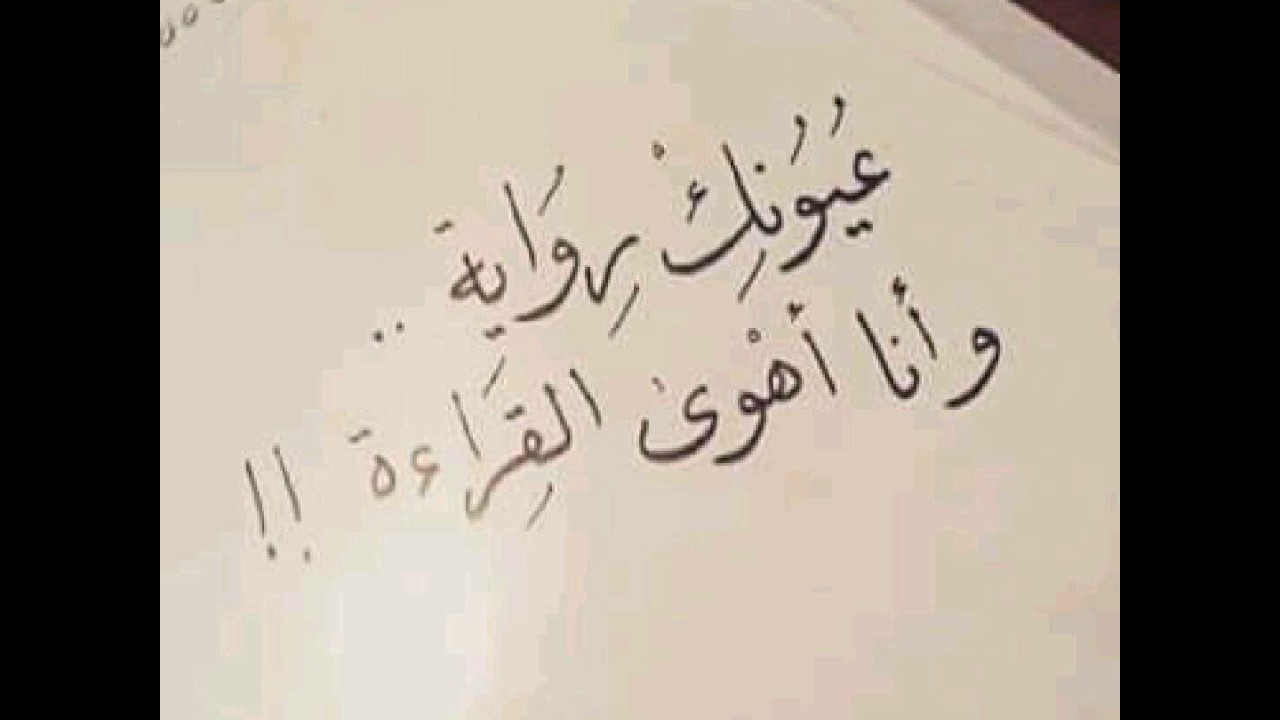 عُيُونِكْ رِوَايَة ..
وأنا أهْوىٰ القِرَاءة !!